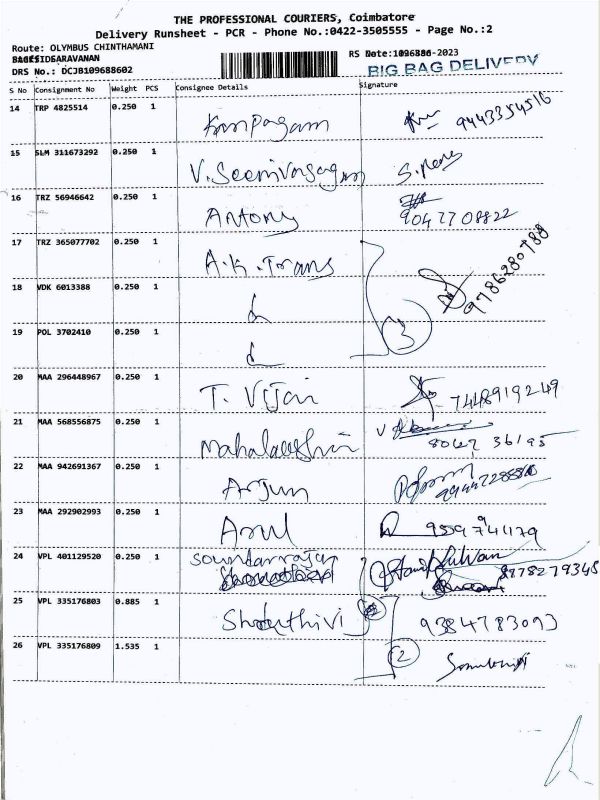 THE PROFESSIONAL COURIERS, Coimbatore
Delivery Runsheet - PCR - Phone No.:0422-3505555 - Page No.:2
Route: OLYMBUS CHINTHAMANI
SARAVANAN
RS Date: -2023
DRS No.: DCJB109688602
BIG BAG DELIVERY
S No Consignment No Weight PCS Consignee Details Signature
14 TRP 4825514 0.250 1 Karpagam 9443354516
15 SLM 311673292 0.250 1 V. Seenivasagam
16 TRZ 56946642 0.250 1 Antony 9047708822
17 TRZ 365077702 0.250 1 A.K. Trans
18 VDK 6013388 0.250 1 9786280788
19 POL 3702410 0.250 1 3
20 MAA 296448967 0.250 1 T. Vijai 7448919249
21 MAA 568556875 0.250 1 Mahalakshmi 80627 36195
22 MAA 942691367 0.250 1 Arjun
23 MAA 292902993 0.250 1 Arul
24 VPL 401129520 0.250 1 Soundarrajan
25 VPL 335176803 0.885 1 9384783093
26 VPL 335176809 1.535 1 2